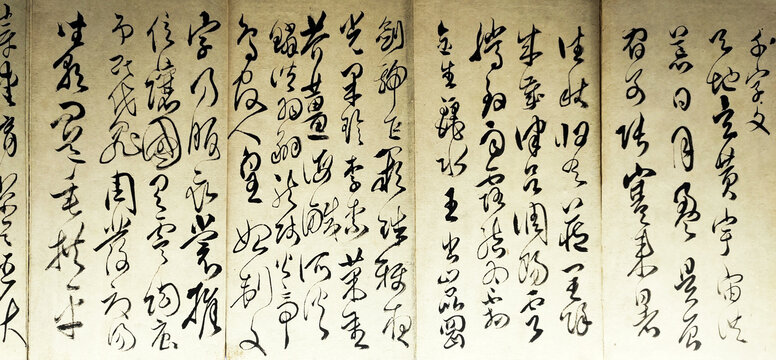 千字文
天地玄黄宇宙洪
荒日月盈昃辰
宿列張寒來暑
往秋收冬藏閏餘
成歲律呂調陽雲
騰致雨露結為霜
金生麗水玉出崑岡
劍號巨闕珠稱夜
光果珍李柰菜重
芥薑海鹹河淡
鱗潛羽翔龍師火帝
鳥官人皇始制文
字乃服衣裳推
位讓國有虞陶唐
弔民伐罪周發殷湯
坐朝問道垂拱平
章愛育黎首臣